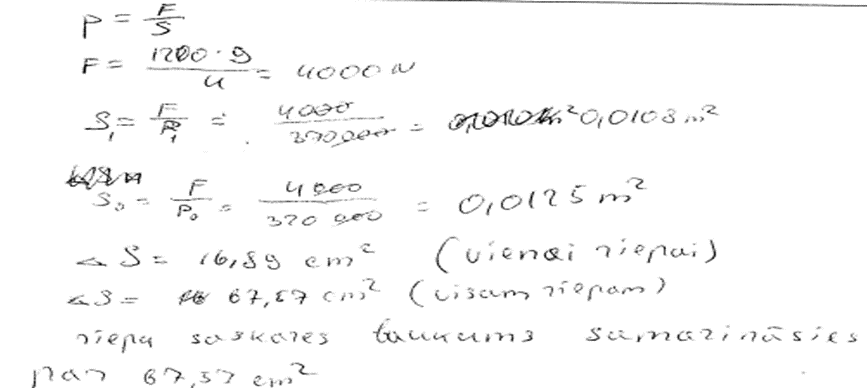 P = F/S
F = 1200·g / 4 = 4000 N
S₁ = F/P₁ = 4000/370 000 = 0,0108 m²
S₀ = F/P₀ = 4000/320 000 = 0,0125 m²
ΔS = 16,89 cm² (vienai riepai)
ΔS = 67,57 cm² (visam riepam)
riepu saskares laukums samazināsies
par 67,57 cm²